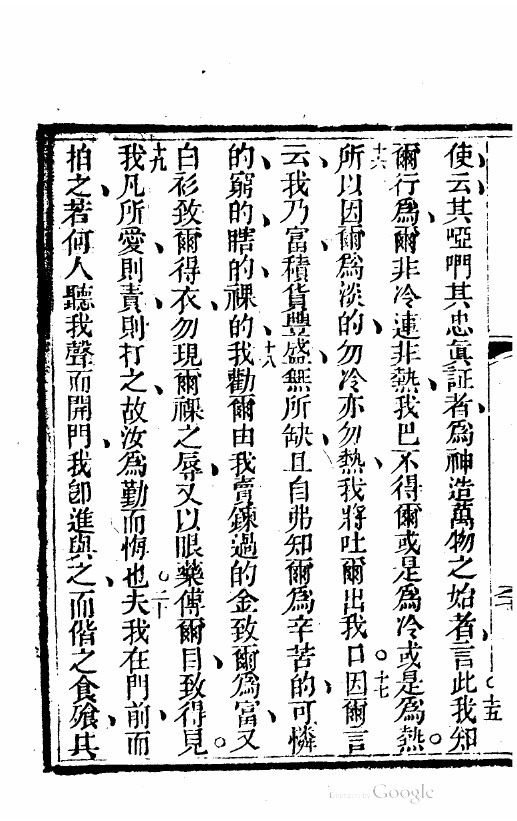 使云其啞們其忠眞証者爲神造萬物之始者言此我知十五
爾行爲爾非冷連非熱我巴不得爾或是爲冷或是爲熱
十六所以因爾爲淡的勿冷亦勿熱我將吐爾出我口因爾言十七
云我乃富積貨豐盛無所缺且自弗知爾爲辛苦的可憐
的窮的瞎的裸的我勸爾由我賣鍊過的金致爾爲富又十八
白衫致爾得衣勿現爾裸之辱又以眼藥傅爾目致得見
十九我凡所愛則責則打之故汝爲勤而悔也夫我在門前而二十
拍之若何人聽我聲而開門我卽進與之而偕之食飱其
Digitized by Google